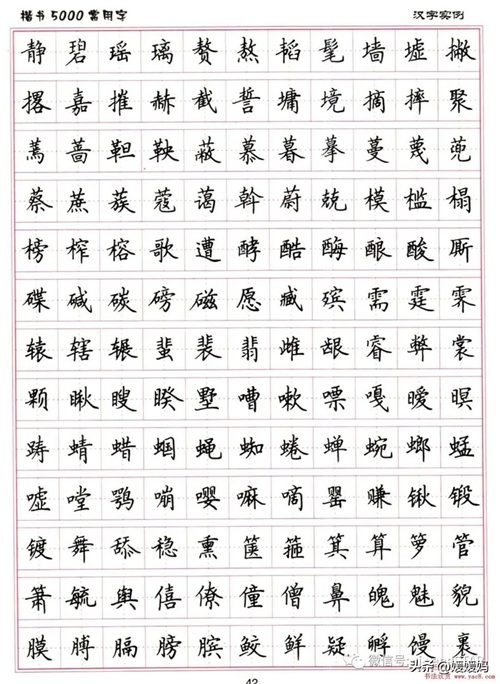 楷书5000常用字 汉字实例
静碧瑶璃赘熬韬髦墙墟撇
撂嘉摧赫截誓墉境摘摔聚
蔫蔷靼鞅蔽慕暮摹蔓蔑蔸
蔡蔗蔟蔻蔼斡蔚兢模槛榻
榜榨榕歌遭酵酷酶酿酸厮
碟碱碳磅磁愿臧殡需霆霁
辕辖辗蜚裴翡雌龈睿弊裳
颗瞅瞍睽墅嘈嗽嘌嘎暧暝
踌蜻蜡蝈蝇蜘蜷蝉蜿螂蜢
嘘嘡鹗嘣嘤嘛嘀罂赚锹锻
镀舞舔稳熏箧箍箕算箩管
箫毓舆僖僚僮僧鼻魄魅貌
膜膊膈膀膑鲛鲜疑孵馒裹
42
微信号
头条@媛媛妈
书法欣赏 www.yac8.com